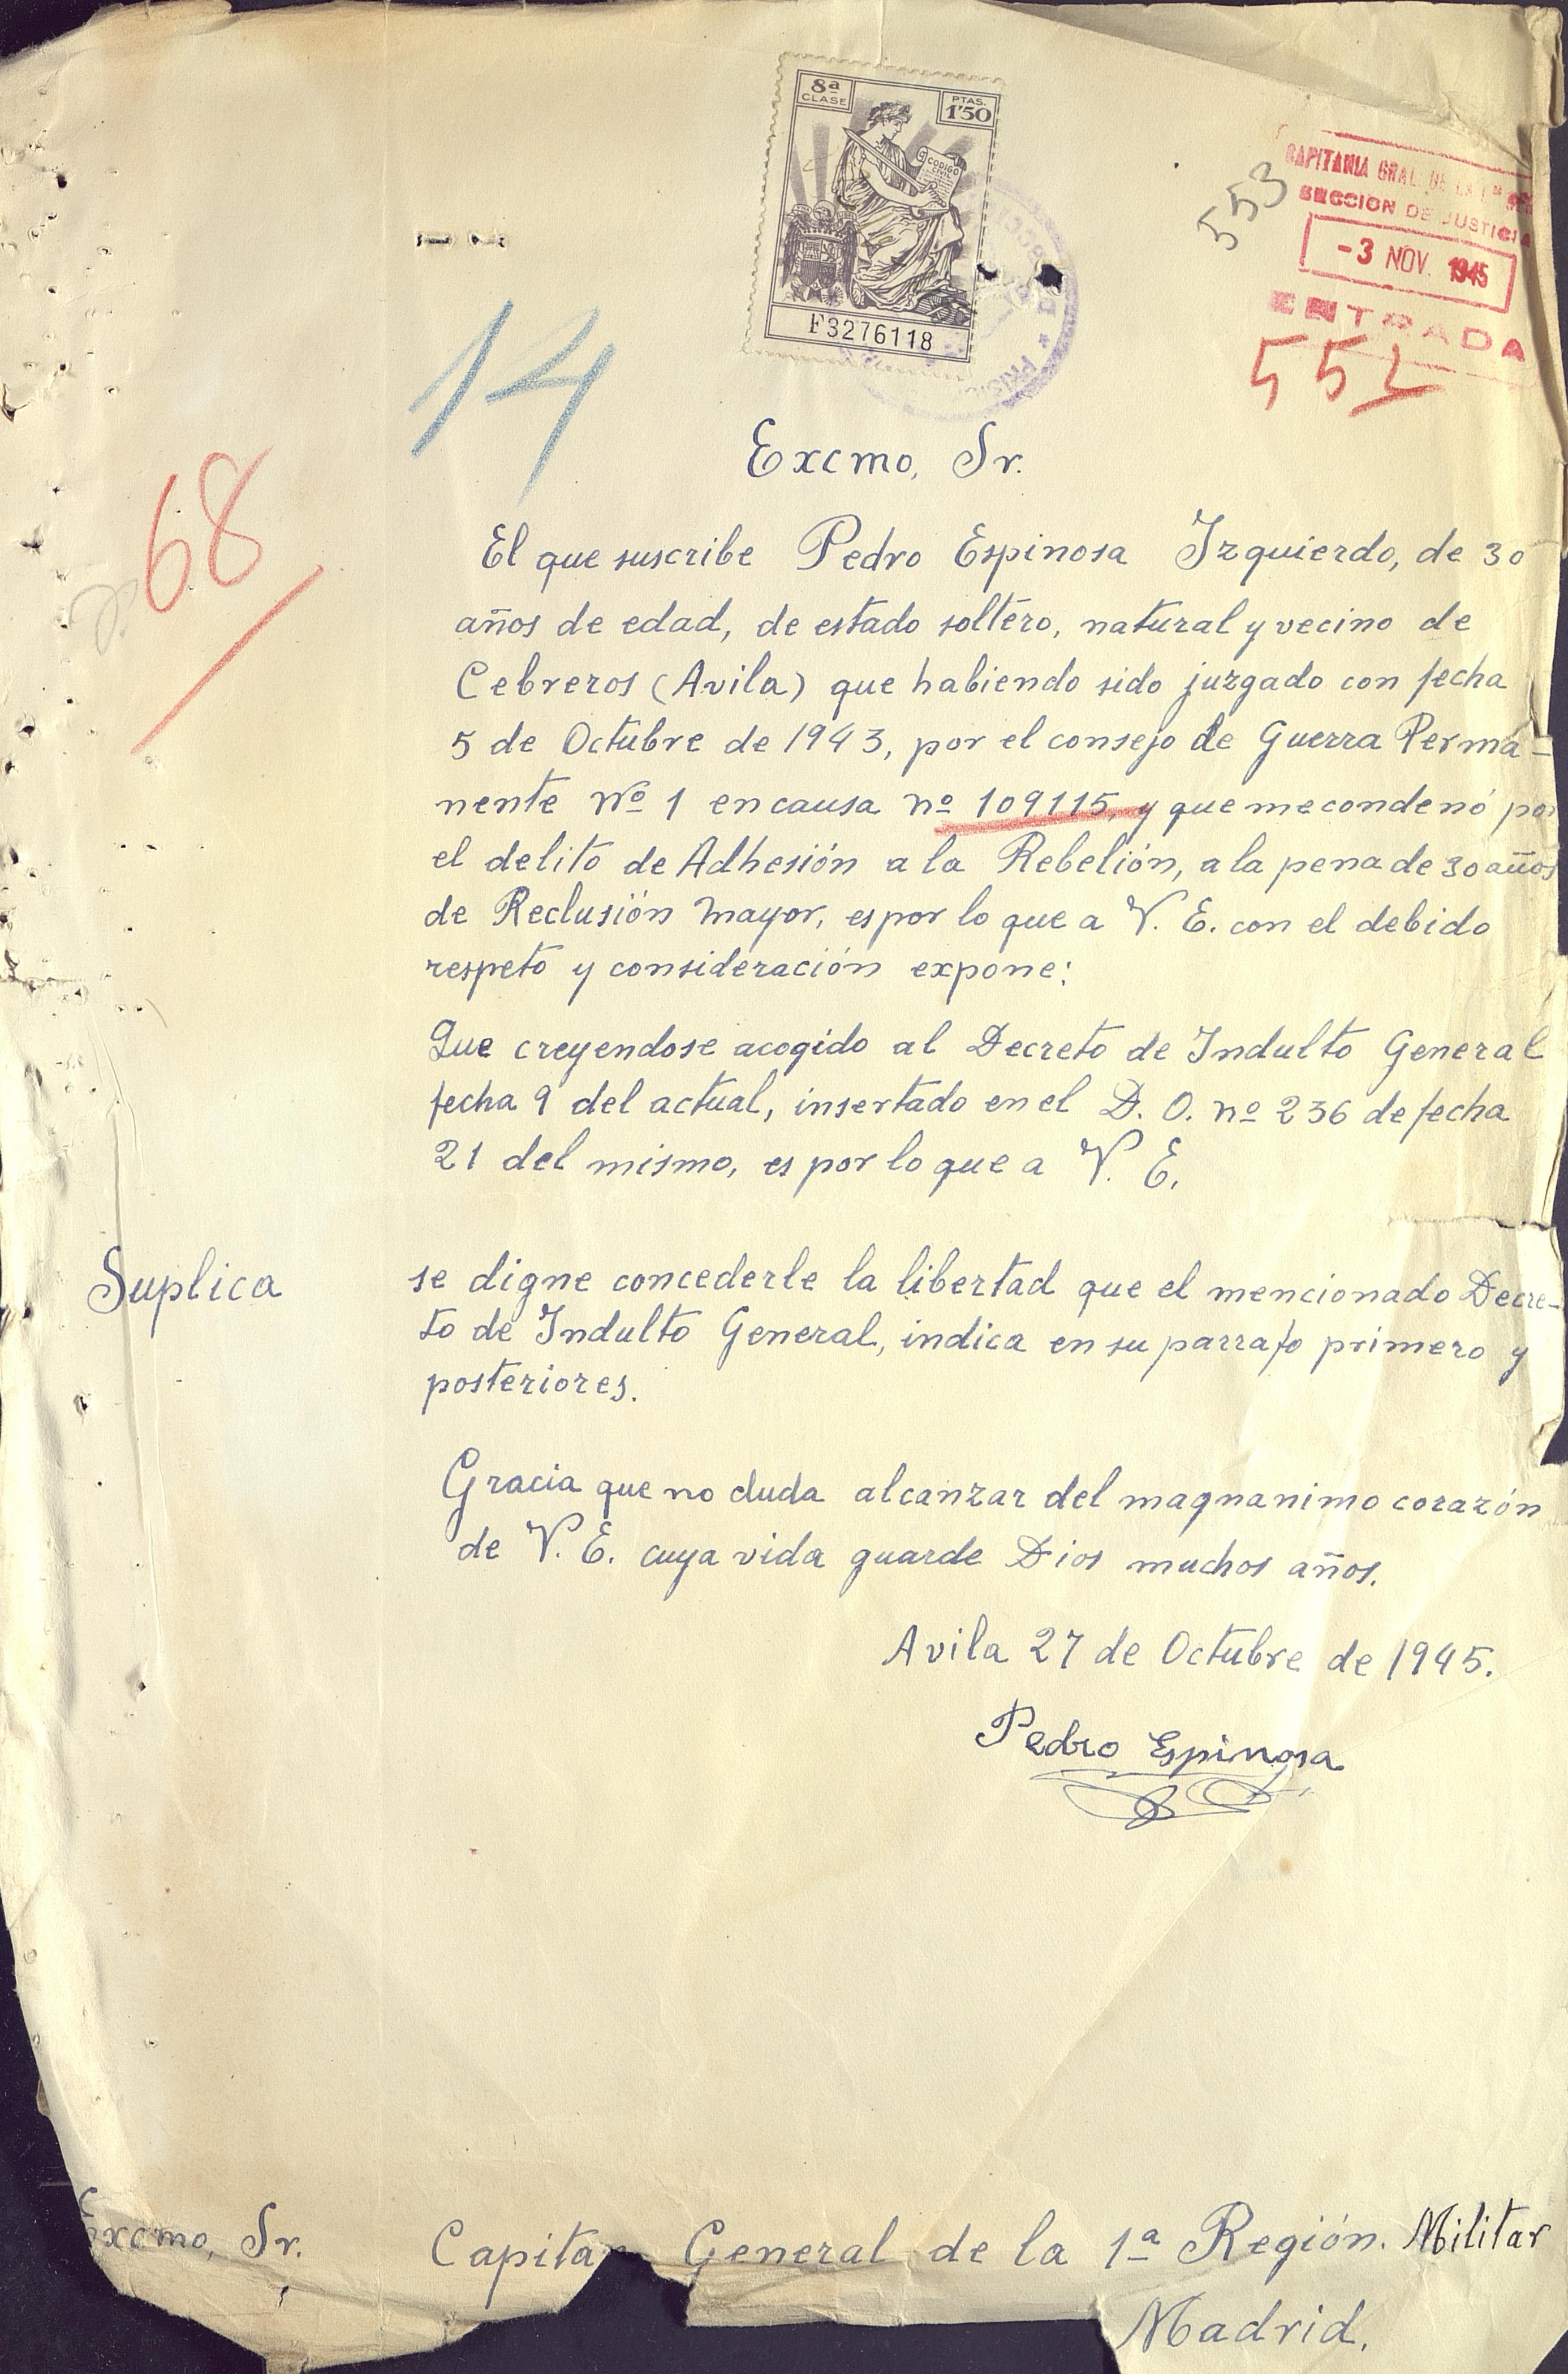 8ª
CLASE
PTAS.
1'50
CODIGO
CIVIL
F3276118
553
CAPITANIA GRAL. DE LA 1ª
SECCION DE JUSTICIA
-3 NOV. 1945
ENTRADA
14
68
Excmo, Sr.
El que suscribe Pedro Espinosa Izquierdo, de 30
años de edad, de estado soltero, natural y vecino de
Cebreros (Avila) que habiendo sido juzgado con fecha
5 de Octubre de 1943, por el consejo de Guerra Perma-
nente Nº 1 en causa nº 109115, y que me condenó por
el delito de Adhesión a la Rebelión, a la pena de 30 años
de Reclusión Mayor, es por lo que a V. E. con el debido
respeto y consideración expone:
Que creyendose acogido al Decreto de Indulto General
fecha 9 del actual, insertado en el D. O. nº 236 de fecha
21 del mismo, es por lo que a V. E.
Suplica se digne concederle la libertad que el mencionado Decre-
to de Indulto General, indica en su parrafo primero y
posteriores.
Gracia que no duda alcanzar del magnanimo corazón
de V. E. cuya vida guarde Dios muchos años.
Avila 27 de Octubre de 1945.
Pedro Espinosa
Excmo, Sr. Capitan General de la 1ª Región. Militar
Madrid.